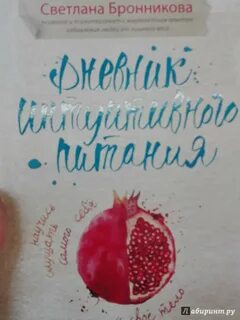 Светлана Бронникова
Дневник
интуитивного
питания
научись
слушать
самого себя
своё тело
Лабиринт.ру